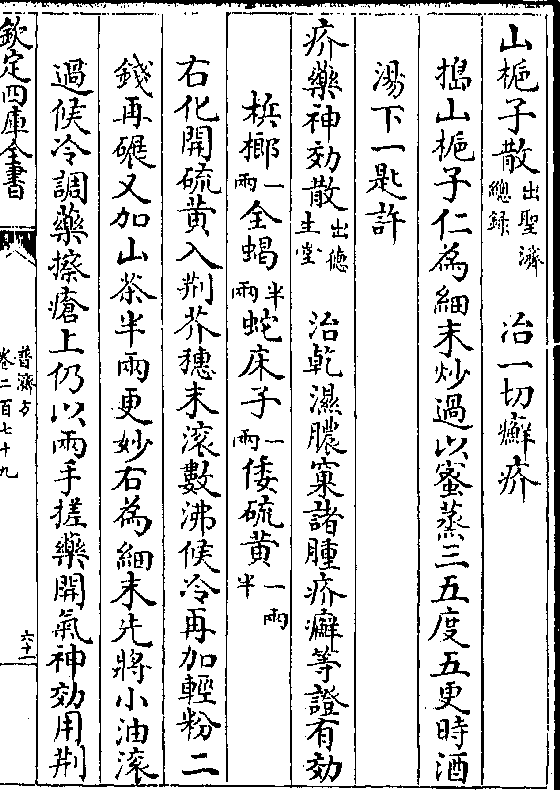 山梔子散出聖濟總録　治一切癬疥
搗山梔子仁為細末炒過以蜜蒸三五度五更時酒
湯下一匙許
疥藥神効散出德生堂　治乾濕膿窠諸腫疥癬等證有効
梹榔一兩全蝎半兩蛇床子一兩倭硫黄一兩半
右化開硫黄入荆芥穗末滚數沸候冷再加輕粉二
錢再碾又加山茶半兩更妙右為細末先將小油滚
過候冷調藥擦瘡上仍以兩手搓藥開氣神効用荆
欽定四庫全書
普濟方
卷二百七十九
六十一